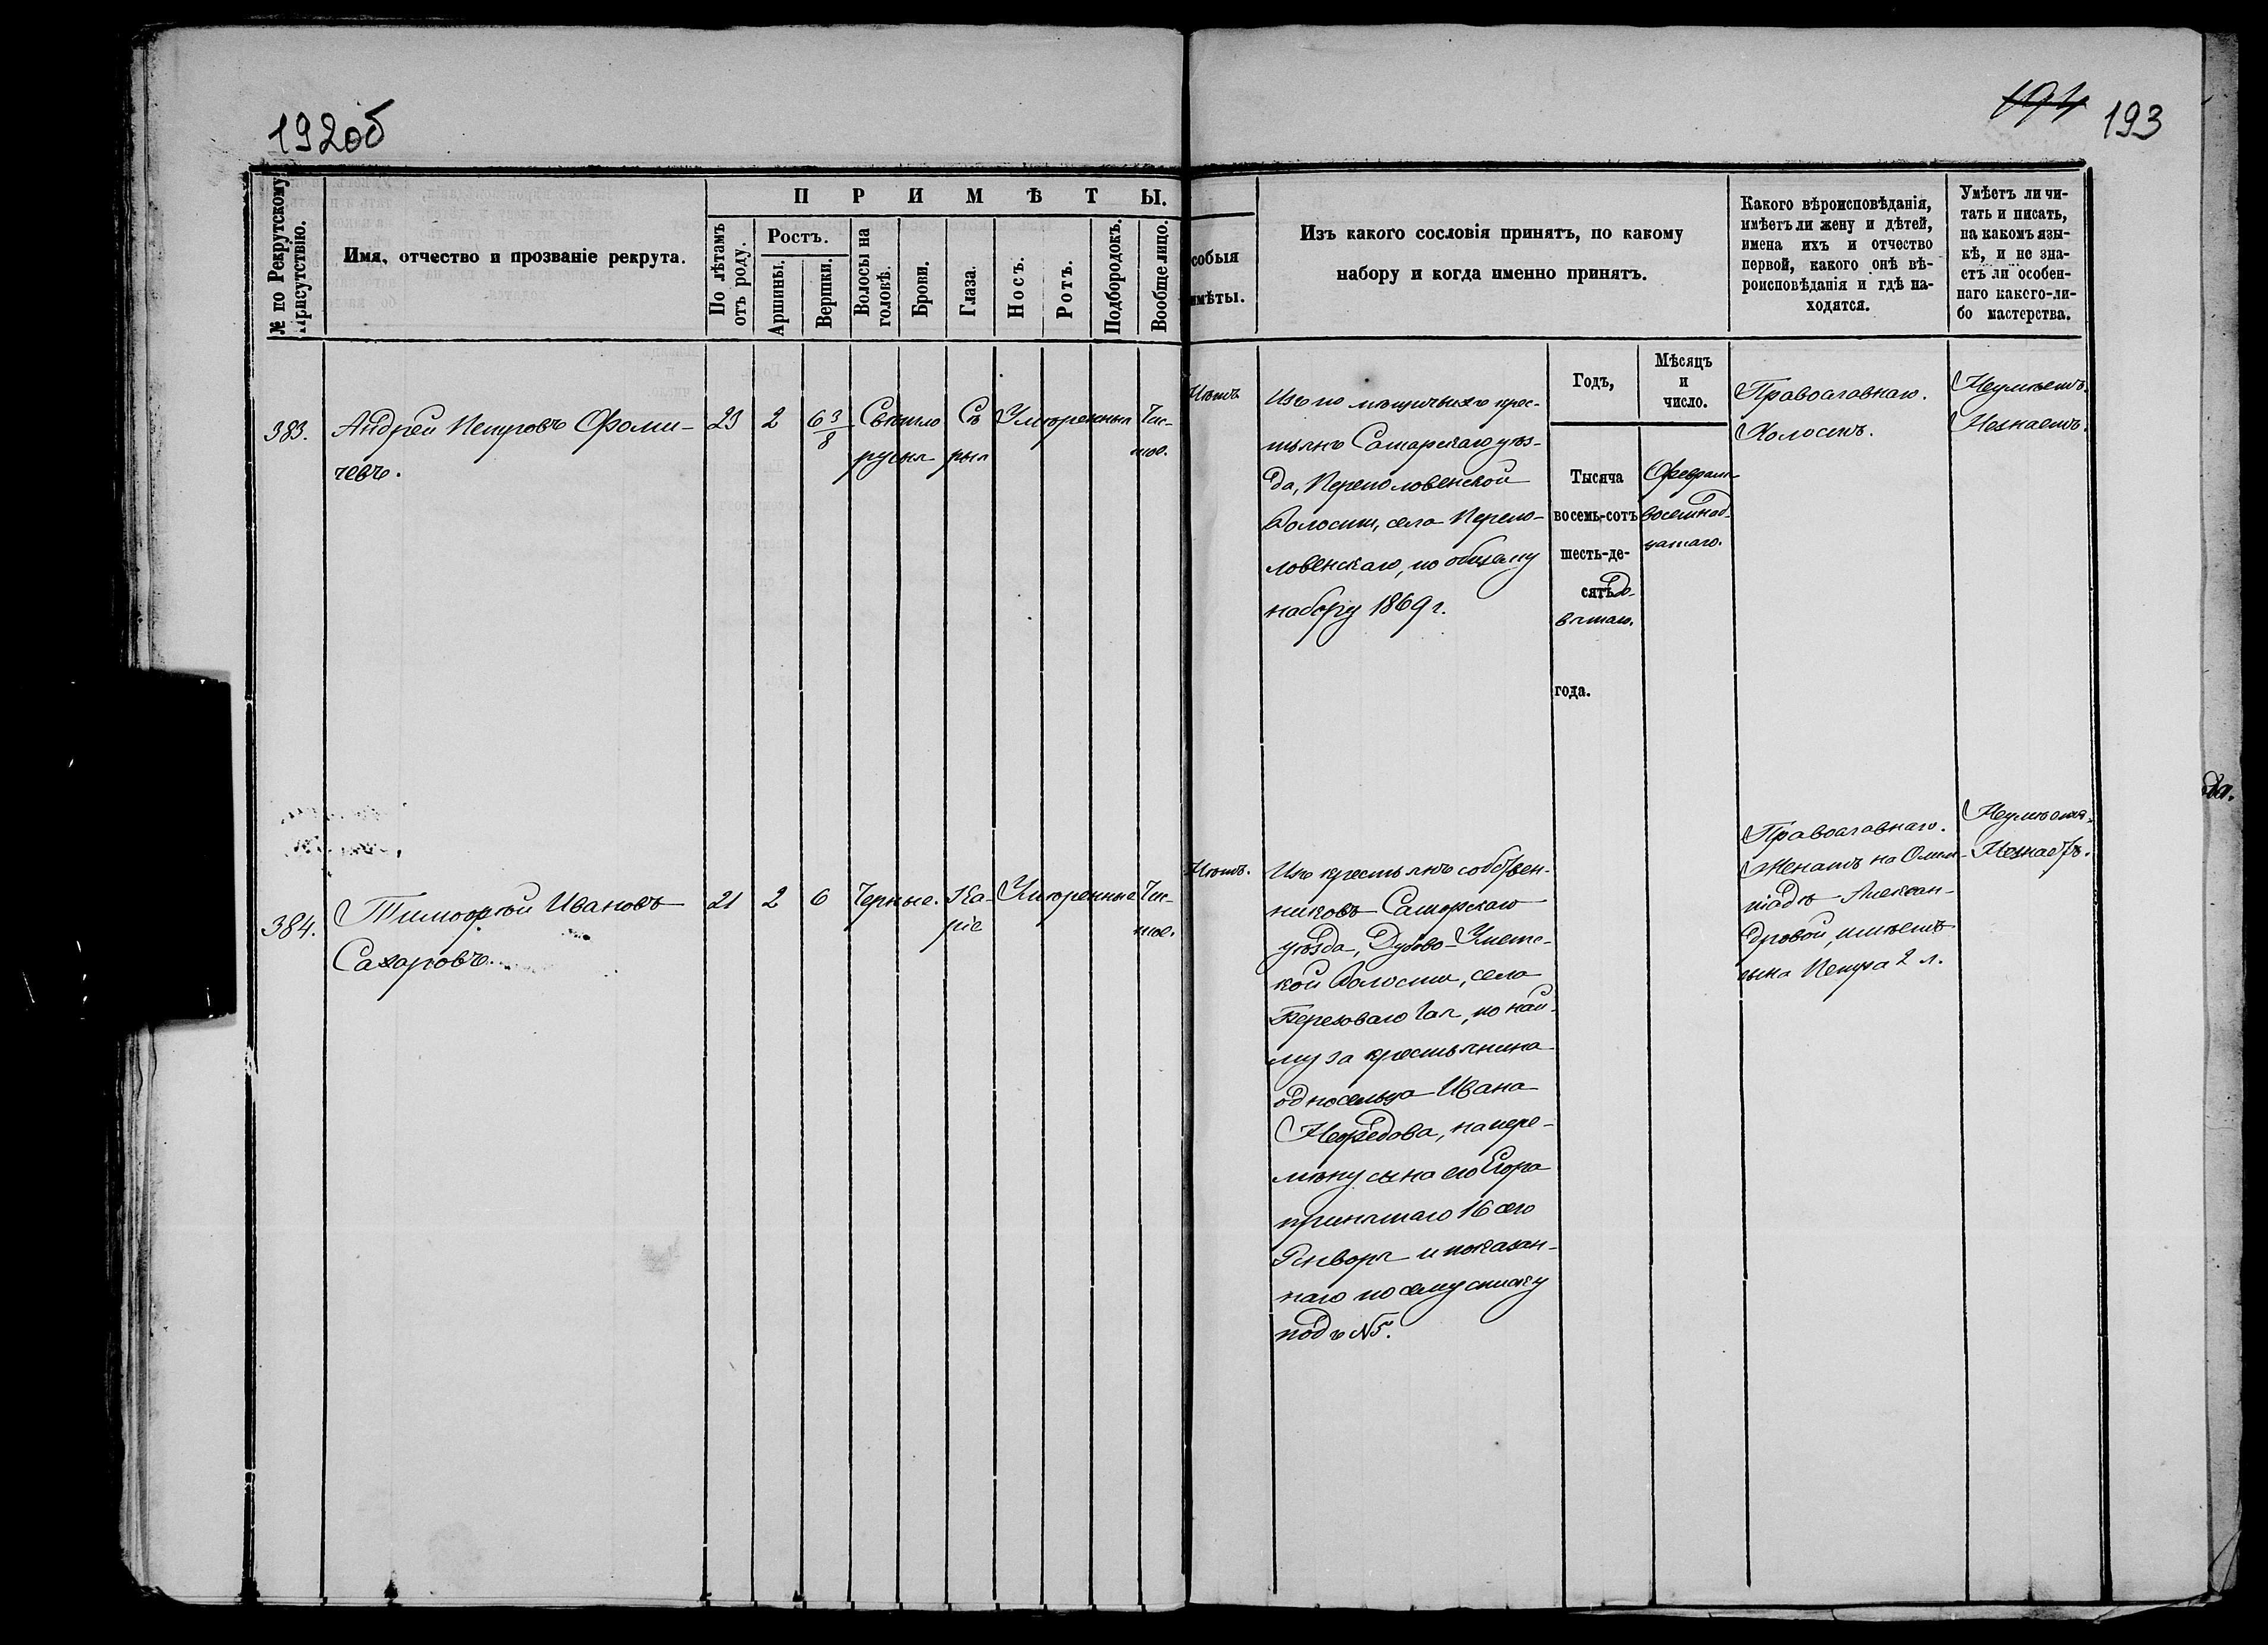 192об
194 193
№ по Рекрутскому
Присутствію.
Имя, отчество и прозваніе рекрута.
ПРИМѢТЫ.
По лѣтамъ
отъ роду.
Ростъ.
Аршины.
Вершки.
Волосы на
головѣ.
Брови.
Глаза.
Носъ.
Ротъ.
Подбородокъ.
Вообще лицо.
собыя
имѣты.
Изъ какого сословія принятъ, по какому
набору и когда именно принятъ.
Какого вѣроисповѣданія,
имѣетъ ли жену и дѣтей,
имена ихъ и отчество
первой, какого онѣ вѣ-
роисповѣданія и гдѣ на-
ходятся.
Умѣетъ ли чи-
тать и писать,
на какомъ язы-
кѣ, и не зна-
етъ ли особен-
наго какого-ли-
бо мастерства.
Годъ,
Мѣсяцъ
и
число.
383.
Андрей Петровъ Фоми-
чевъ.
23 2 6 3/8
Свѣтло
русыя
Сѣ
рыя
Умѣренныя
Чис-
тое.
Нѣтъ
Изъ помѣщичьихъ крес-
тьянъ Самарскаго уѣз-
да, Переполовенской
Волости, села Перепо-
ловенскаго, по общему
набору 1869 г.
Тысяча
восемь-сотъ
шесть-де-
сятъ де-
вятаго.
года.
Февраля
восемнад-
цатаго.
Православнаго.
Холостъ.
Неумѣетъ.
Незнаетъ.
384.
Тимофѣй Ивановъ
Сахаровъ.
21 2 6
Черные.
Ка-
ріе
Умѣренные
Чис-
тое.
Нѣтъ.
Изъ крестьянъ собствен-
никовъ Самарскаго
уѣзда, Дубово-Уметс-
кой Волости, села
Березоваго Гая, по най-
му за крестьянина
односельца Ивана
Нефедова, на пере-
мѣну сына его Егора
принятаго 16 сего
Января и показан-
наго по сему списку
подъ №5.
Православнаго.
Женатъ на Олим-
піадѣ Алексан-
дровой, имѣетъ
сына Петра 2 л.
Неумѣетъ.
Незнаетъ.